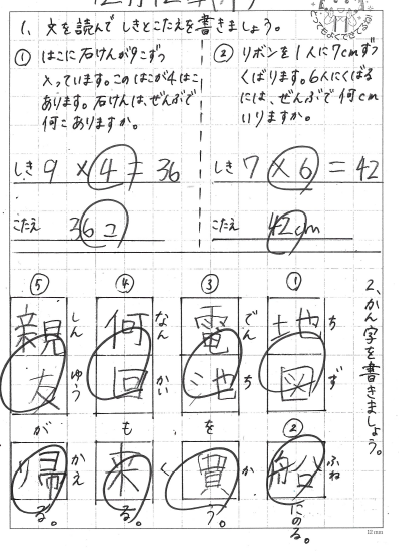 12月12日(木)
1、文を読んで しきとこたえを書きましょう。
① はこに石けんが9こずつ
入っています。このはこが4はこ
あります。石けんは、ぜんぶで
何こありますか。
しき 9 × 4 = 36
こたえ 36こ
② リボンを1人に7cmずつ
くばります。6人にくばる
には、ぜんぶで何cm
いりますか。
しき 7 × 6 = 42
こたえ 42cm
2、かん字を書きましょう。
① 地図 ちず
② 船 ふね にのる。
③ 電池 でんち を
買 か う。
④ 何回 なんかい も
来 く る。
⑤ 親友 しんゆう が
帰 かえ る。
12mm